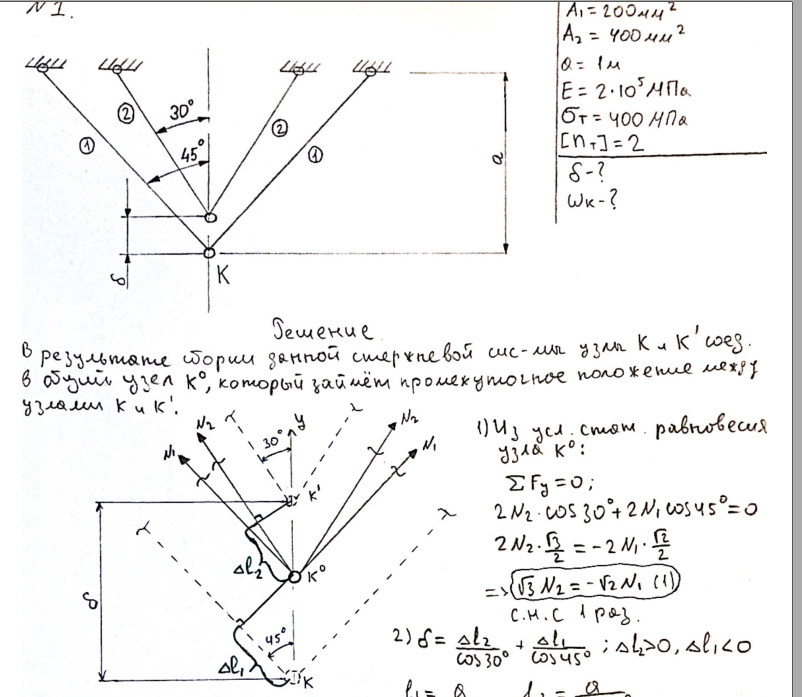 №1.
A₁=200мм²
A₂=400мм²
a=1м
E=2·10⁵МПа
σт=400МПа
[nт]=2
δ-?
ωк-?
② 30° ②
① 45° ①
a
δ
K
Решение
В результате сборки данной стержневой сис-мы узлы K и K' соед.
в общий узел K°, который займёт промежуточное положение между
узлами K и K'.
N₁ N₂ 30° y N₂ N₁
K'
Δl₂ K°
δ
45°
Δl₁ K
1) Из усл. стат. равновесия
узла K°:
ΣFy=0;
2N₂·cos30°+2N₁cos45°=0
2N₂·√3/2=-2N₁·√2/2
=> √3N₂=-√2N₁ (1)
С.Н.С 1 раз.
2) δ=Δl₂/cos30°+Δl₁/cos45°; Δl₂>0, Δl₁<0